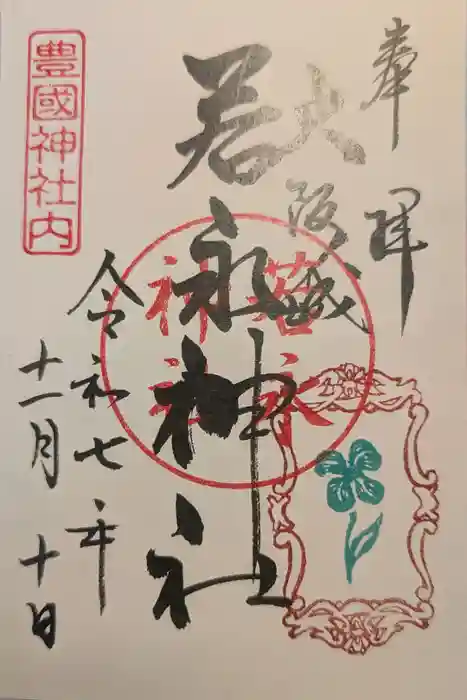 奉拝
大阪城
若永神社
若永神社
令和七年
十一月十日
豊國神社内